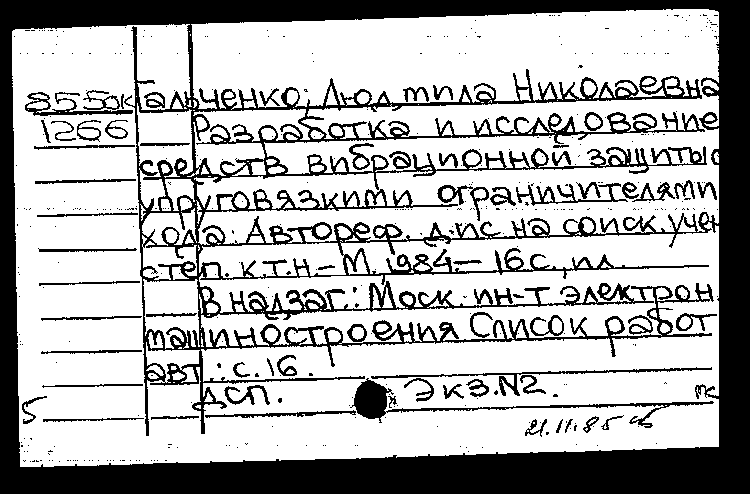 85-5ок Гальченко, Людмила Николаевна
1266 Разработка и исследование
средств вибрационной защиты с
упруговязкими ограничителями
хода: Автореф. дис на соиск. учен
степ. к.т.н.- М., 1984.- 16 с., ил.
В надзаг.: Моск. ин-т электрон.
машиностроения Список работ
авт.: с. 16.
ДСП. Экз. N2.
5
21.11.85